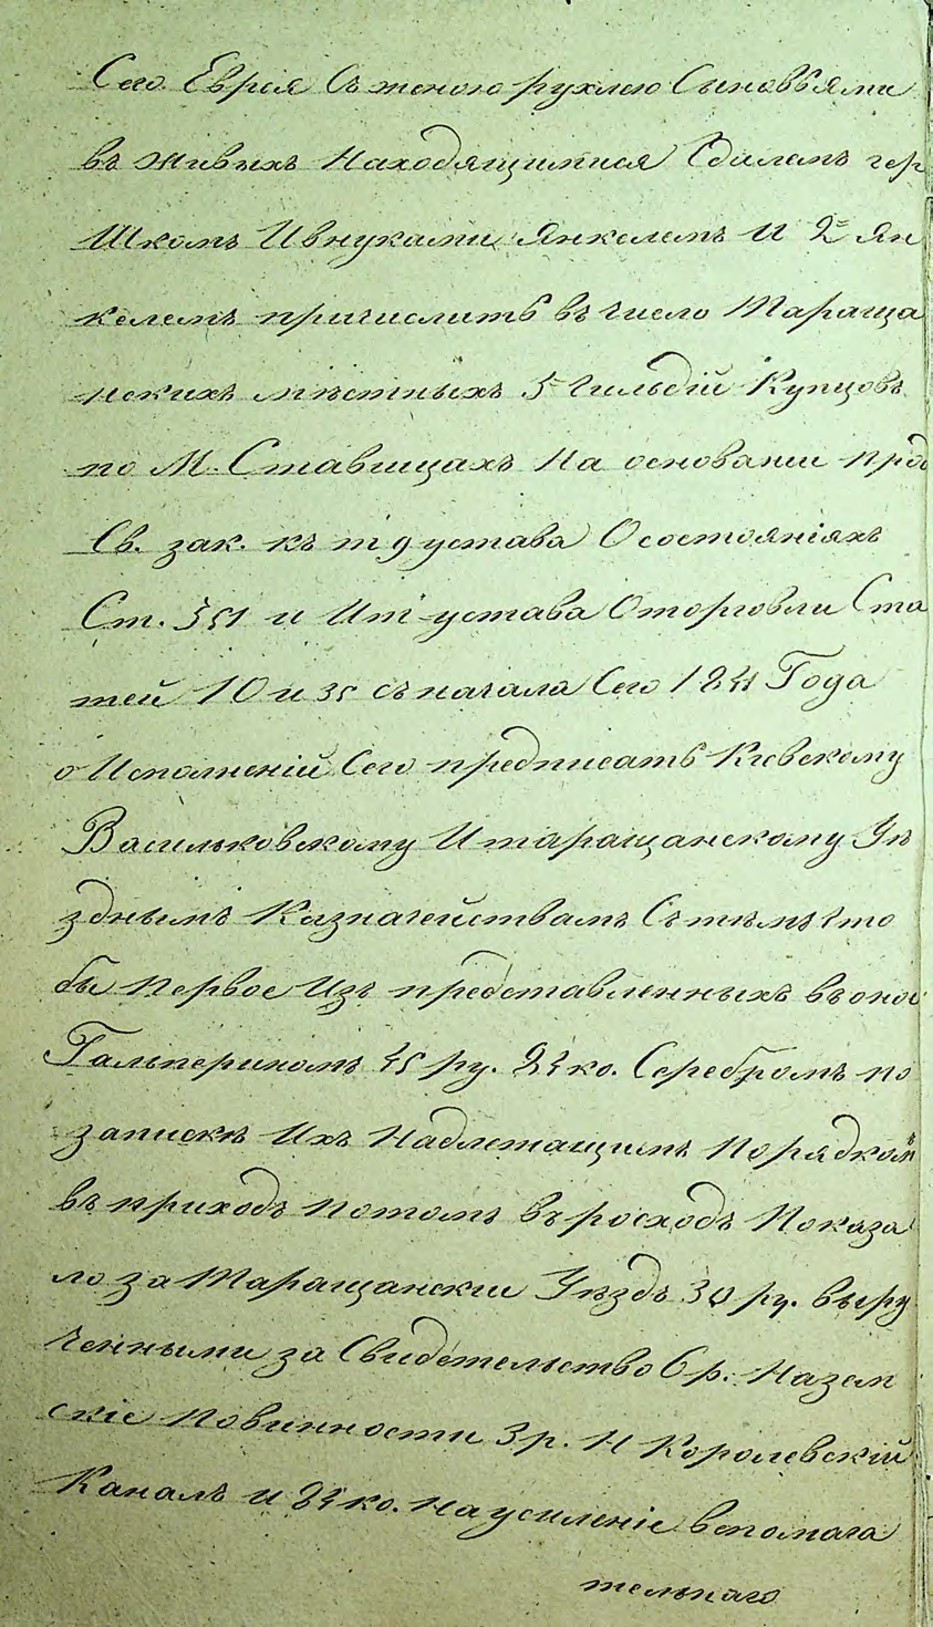 Сего Еврея Съ женою рухлею Сыновьями
въ живыхъ Находящимися Сдилемъ гер
Шкомъ И внуками Янкелемъ и 2 Ян
келемъ причислить въ число Тараща
нскихъ мѣстныхъ 3 Гильдіи Купцовъ
по М. Ставищахъ На основаніи прод
Св. зак. къ т 9 устава О состояніяхъ
Ст. и Ит устава О торговли Ста
тей 10 и съ начала Сего Года
о Исполненіи Сего предписать Кіевскому
Васильковскому И таращанскому Уѣ
зднымъ Казначействамъ Съ тѣмъ что
бы первое Изъ представленныхъ въ оное
Гальпериномъ ру. ко. Серебромъ по
запискѣ Ихъ Надлежащимъ Порядкомъ
въ приходъ потомъ въ росходъ Показа
ло за Таращанскии Уѣздъ 30 ру. выру
ченными за Свидетельство 6 р. На зем
скіе повинности 3 р. Н Королевскій
Каналъ и ко. на усиленіе вспомага
тельнаго